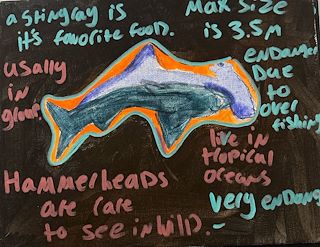 a stingray is
it's favorite food.
Max size
is 3.5M
usally
in
group
endanger
Due
to
over
fishing
live in
tropical
oceans
Hammerheads
are rare
to see in wild.
very endang